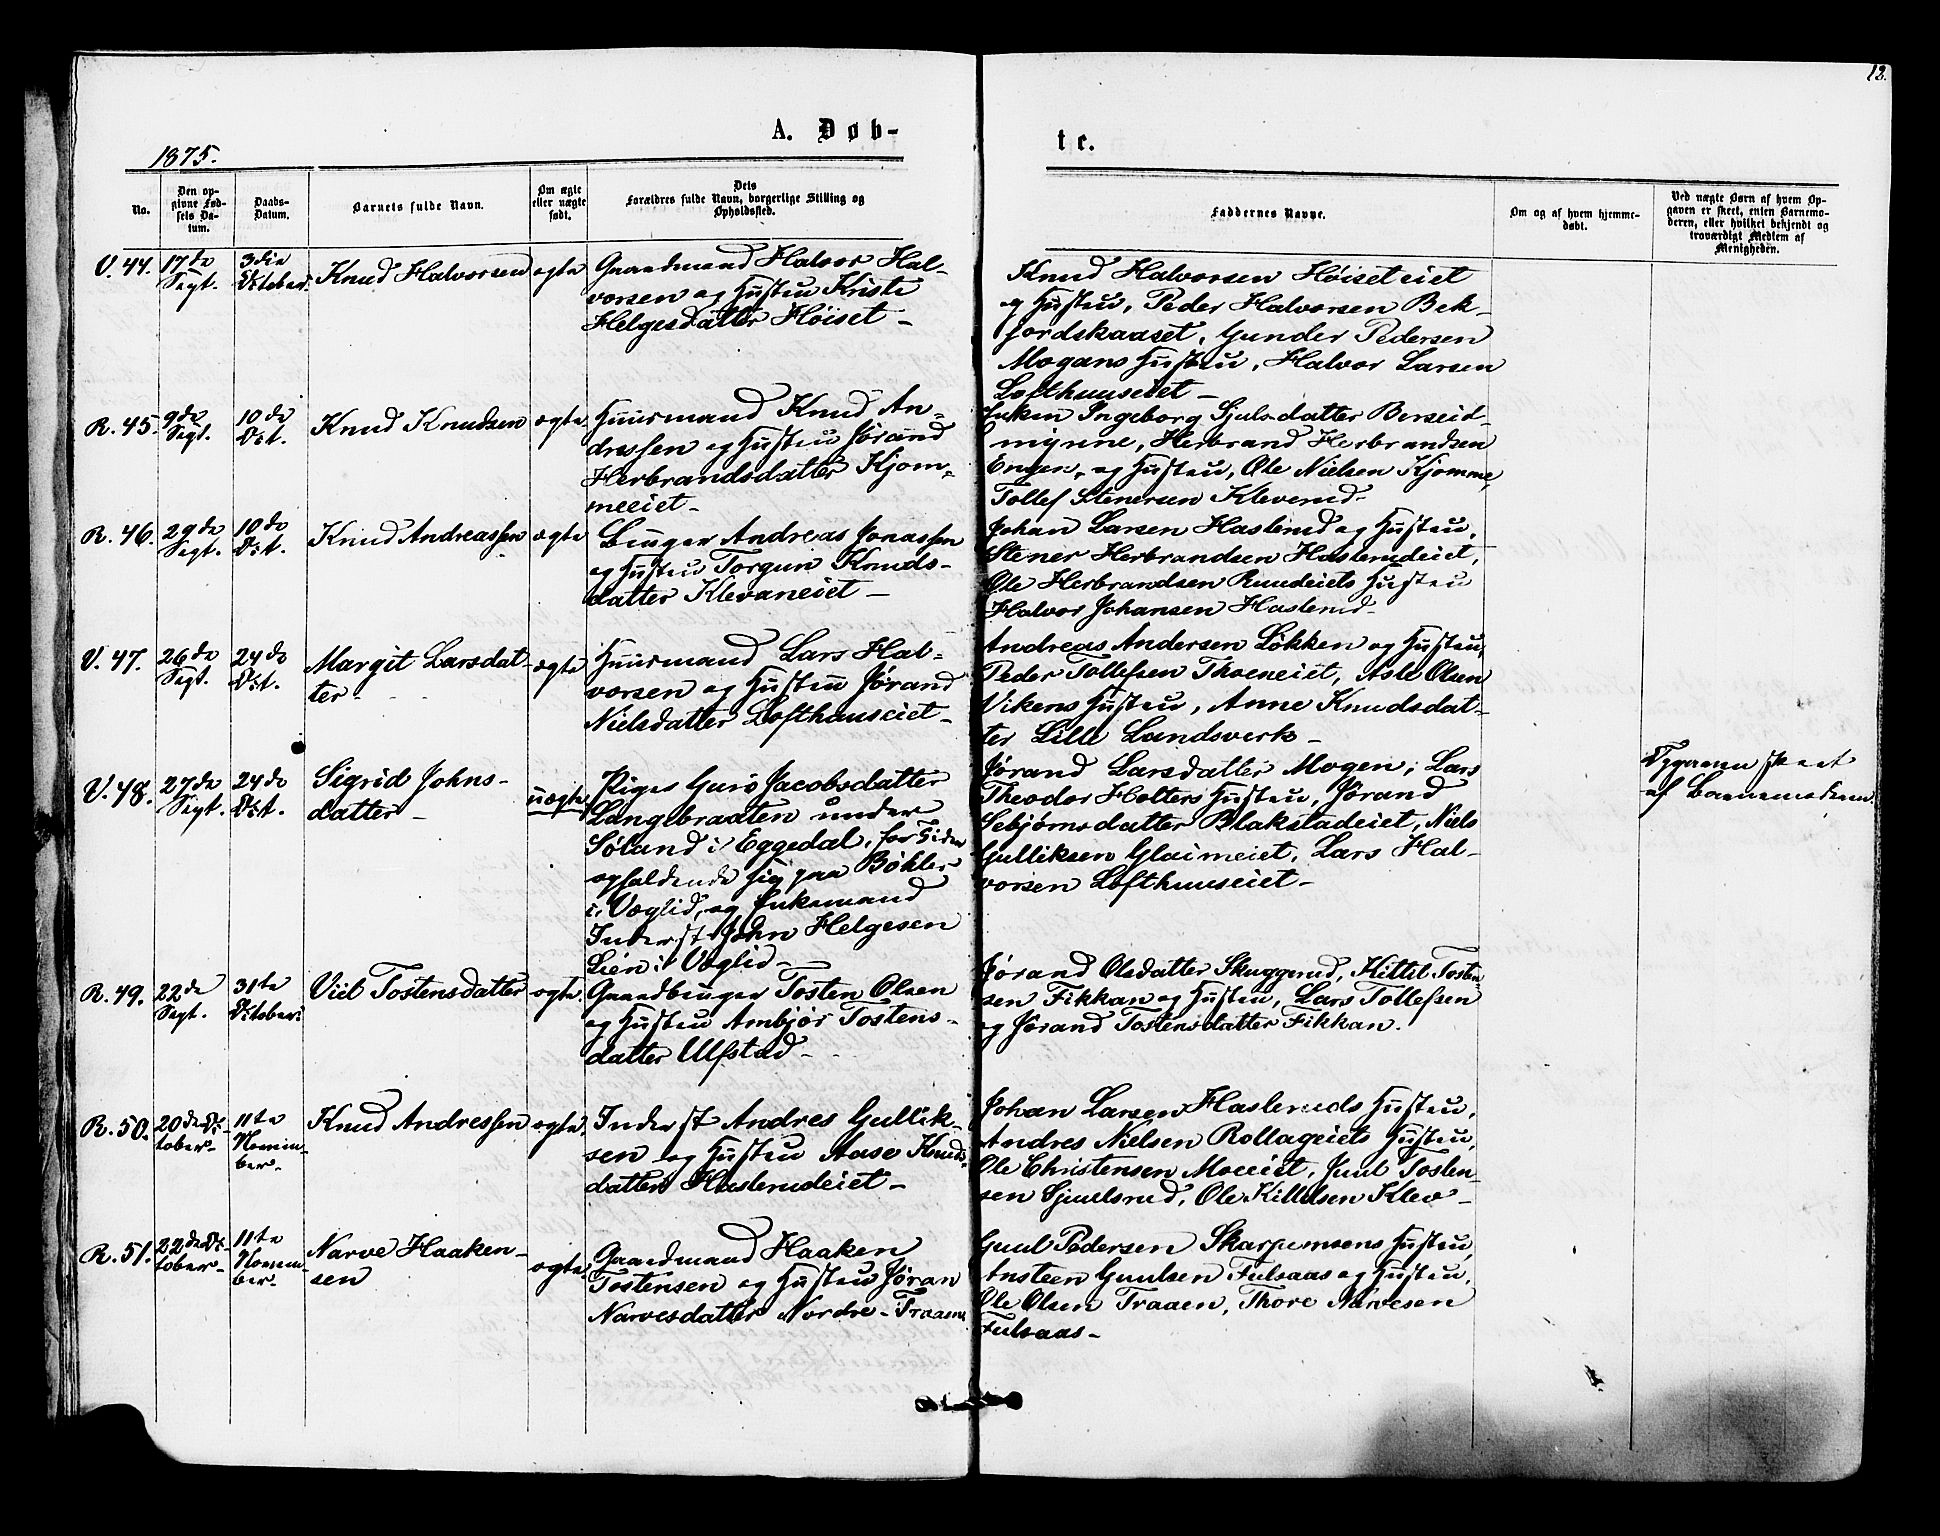 12.
A. Døb-
te.
1875.
No.
Den op-
givne Fød-
sels Da-
tum.
Daabs-
Datum.
Barnets fulde Navn.
Om ægte
eller uægte
født.
Dets
Forældres fulde Navn, borgerlige Stilling og
Opholdssted.
Faddernes Navne.
Om og af hvem hjemme-
døbt.
Ved uægte Børn af hvem Op-
gaven er skeet, enten Barnemo-
deren, eller hvilket bekjendt og
troværdigt Medlem af
Menigheden.
V. 44.
17de
Sept.
3die
October.
Knud Halvorsen
ægte
Gaardmand Halvor Hal-
vorsen og Hustru Kristi
Helgesdatter Høiset -
Knud Halvorsen Høiseteiet
og Hustru, Peder Halvorsen Bek-
jordskaaset, Gunder Pedersen
Mogans Hustru, Halvor Larsen
Lofthuuseiet -
R. 45.
9de
Sept.
10de
Oct.
Knud Knudsen
ægte
Huusmand Knud An-
dressen og Hustru Jørand
Herbrandsdatter Kjom-
meeiet -
Enken Ingeborg Gjulsdatter Berseid-
mynne, Herbrand Herbrandsen
Engen, og Hustru, Ole Nielsen Kjomme,
Tollef Stenersen Kleverud -
R. 46.
29de
Sept.
10de
Oct.
Knud Andreassen
ægte
Bruger Andreas Jonassen
og Hustru Torgun Knuds-
datter Klevaneiet -
Johan Larsen Haslerud og Hustru,
Stener Herbrandsen Haslerudeiet,
Ole Herbrandsen Ruudeiets Hustru
Halvor Johansen Haslerud -
V. 47.
26de
Sept.
24de
Oct.
Margit Larsdat-
ter -
ægte
Huusmand Lars Hal-
vorsen og Hustru Jørand
Nielsdatter Lofthuuseiet -
Andreas Andersen Løkken og Hustru,
Peder Tollefsen Thoeneiet, Asle Olsen
Vikens Hustru, Anne Knudsdat-
ter Lille Landsverk -
V. 48.
27de
Sept.
24de
Oct.
Sigrid Johns-
datter -
uægte
Piges Guro Jacobsdatter
Langebraaten under
Søland i Eggedal, for Tiden
opholdende sig paa Bøhler
i Væglid, og Enkemand
Inderst John Helgesen
Lien i Væglid -
Jørand Larsdatter Mogen, Lars
Theodor Holters Hustru, Jørand
Sebjørnsdatter Blakstadeiet, Niels
Gulliksen Glaimeiet, Lars Hal-
vorsen Lofthuuseiet -
Opgaven skeet
af Barnemoderen.
R. 49.
22de
Sept.
31te
October
Viel Tostensdatter
ægte
Gaardbruger Tosten Olsen
og Hustru Ambjør Tostens-
datter Ulfstad -
Jørand Olsdatter Skuggerud, Kittil Tosten-
sen Fikkan og Hustru, Lars Tollefsen
og Jørand Tostensdatter Fikkan.
R. 50.
20de Oc-
tober -
11te
Novem-
ber -
Knud Andressen
ægte
Inderst Andres Gullik-
sen og Hustru Aase Knuds-
datter Haslerudeiet -
Johan Larsen Hasleruds Hustru,
Andres Nielsen Rollageiets Hustru,
Ole Christensen Moeeiet, Juul Tosten-
sen Gjuulsrud, Ole Kittelsen Klev -
R. 51.
22de Oc-
tober -
11te
Novem-
ber -
Narve Haaken-
sen
ægte
Gaardmand Haaken
Tostensen og Hustru Jøran
Narvesdatter Nordre-Traaen
Guul Pedersen Skarpemoens Hustru,
Ansteen Guulsen Fulsaas og Hustru,
Ole Olsen Traaen, Thore Narvesen
Fulsaas -